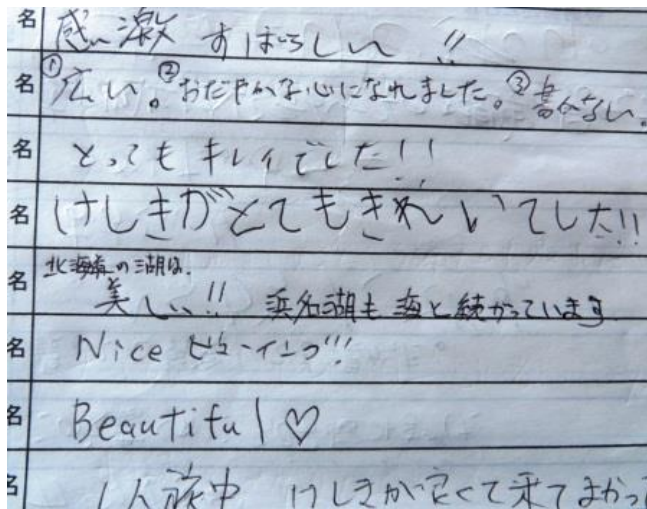 名 感激 すばらしい !!
名 ①広い。②おだやかな心になれました。③書かない。
名 とってもキレイでした!!
名 けしきがとてもきれいでした!!
名 北海道の湖は、
美しい!! 浜名湖も海と続がっています
名 Nice ビューイング!!!
名 Beautiful♡
名 1人旅中 けしきが良くて来てよかっ